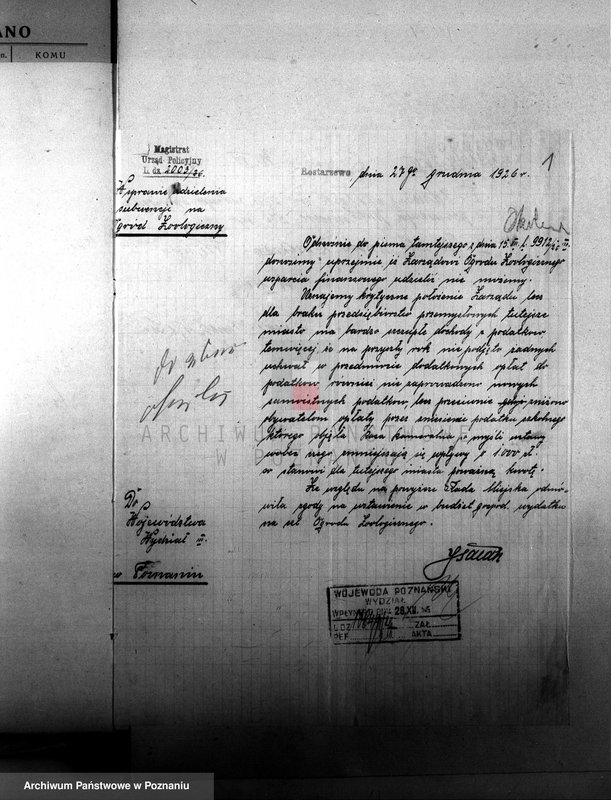 ANO
n.
KOMU
Magistrat
Urząd Policyjny
L. dz. 2003/26.
W sprawie udzielenia
subwencji na
Ogród Zoologiczny
Rostarzewo dnia 27go grudnia 1926 r.
1
Odnośnie do pisma tamtejszego z dnia 15.
donosimy uprzejmie iż Zarządowi Ogrodu Zoologicznego
wsparcia finansowego udzielić nie możemy.
Uznajemy krytyczne położenie Zarządu lecz
dla braku przedsiębiorstw przemysłowych tutejsze
miasto ma bardzo szczupłe dochody z podatków
temwięcej że na przyszły rok nie podjęto żadnych
uchwał w przedmiocie dodatkowych opłat do
podatków również nie zaprowadzono nowych
samoistnych podatków lecz przeciwnie zniżono
obywatelom opłaty przez zniesienie podatku szkolnego
którego objęła Kasa kameralna po myśli ustawy
wobec czego zmniejszają się wpływy o 1000 zł
co stanowi dla tutejszego miasta poważną kwotę.
Ze względu na powyższe Rada Miejska odmó-
wiła zgody na wstawienie w budżet gospod. wydatku
na cel Ogrodu Zoologicznego.
Do
Województwa
Wydział III.
w Poznaniu
WOJEWODA POZNAŃSKI
WYDZIAŁ
WPŁYNĘŁO DNIA 28.XII.
L.DZ.
ZAŁ.
REF.
AKTA
ARCHIWUM PAŃSTWOWE
W POZNANIU
Archiwum Państwowe w Poznaniu